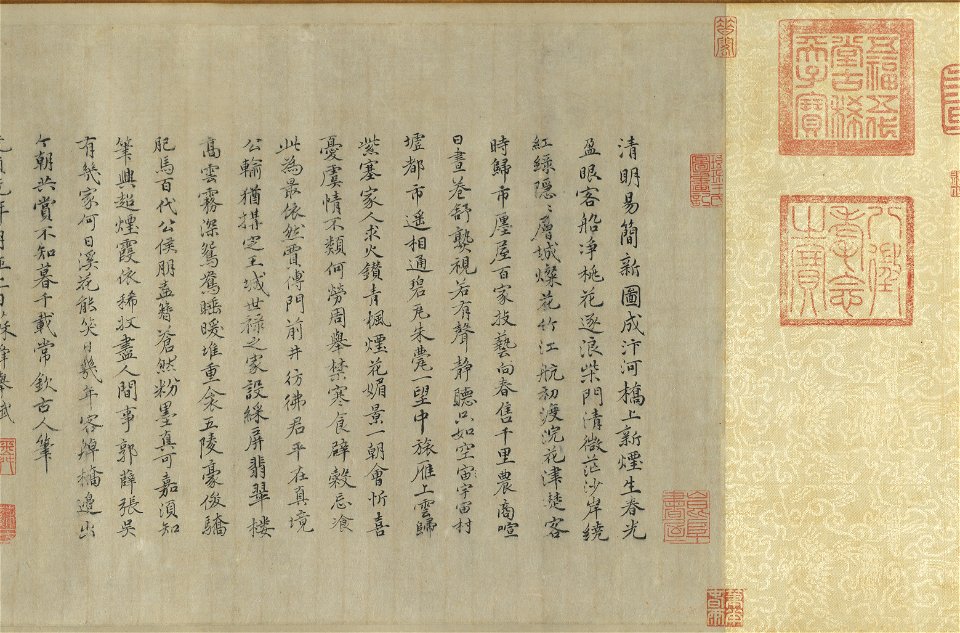 五福五代
堂古稀
天子寶
八徵
耄念
之寶
清明易簡新圖成汴河橋上新煙生春光
盈眼客船淨桃花逐浪柴門清微茫沙岸繞
紅綠隱〻層城燦花竹江航初渡浣花津楚客
時歸市廛屋百家技藝向春售千里農商喧
日晝卷舒褻視若有聲靜聽只如空宙宇宙村
墟都市遥相通碧瓦朱甍一望中旅雁上雲歸
紫塞家人求火鑽青楓煙花媚景一朝會忻喜
憂虞情不類何勞周舉禁寒食辟穀忘飡
此為最依然賈傅門前井彷彿君平在真境
公輸猶搆定王城世祿之家設綵屏翡翠樓
高雲霧深鴛鴦睡暖堆重衾五陵豪俊驕
肥馬百代公侯朋盍簪蒼然粉墨真可嘉須知
筆興超煙霞依稀收盡人間事郭薛張吳
有幾家何日溪花能笑日幾年客牌牆邊出
今朝共賞不知暮千載常欽古人筆